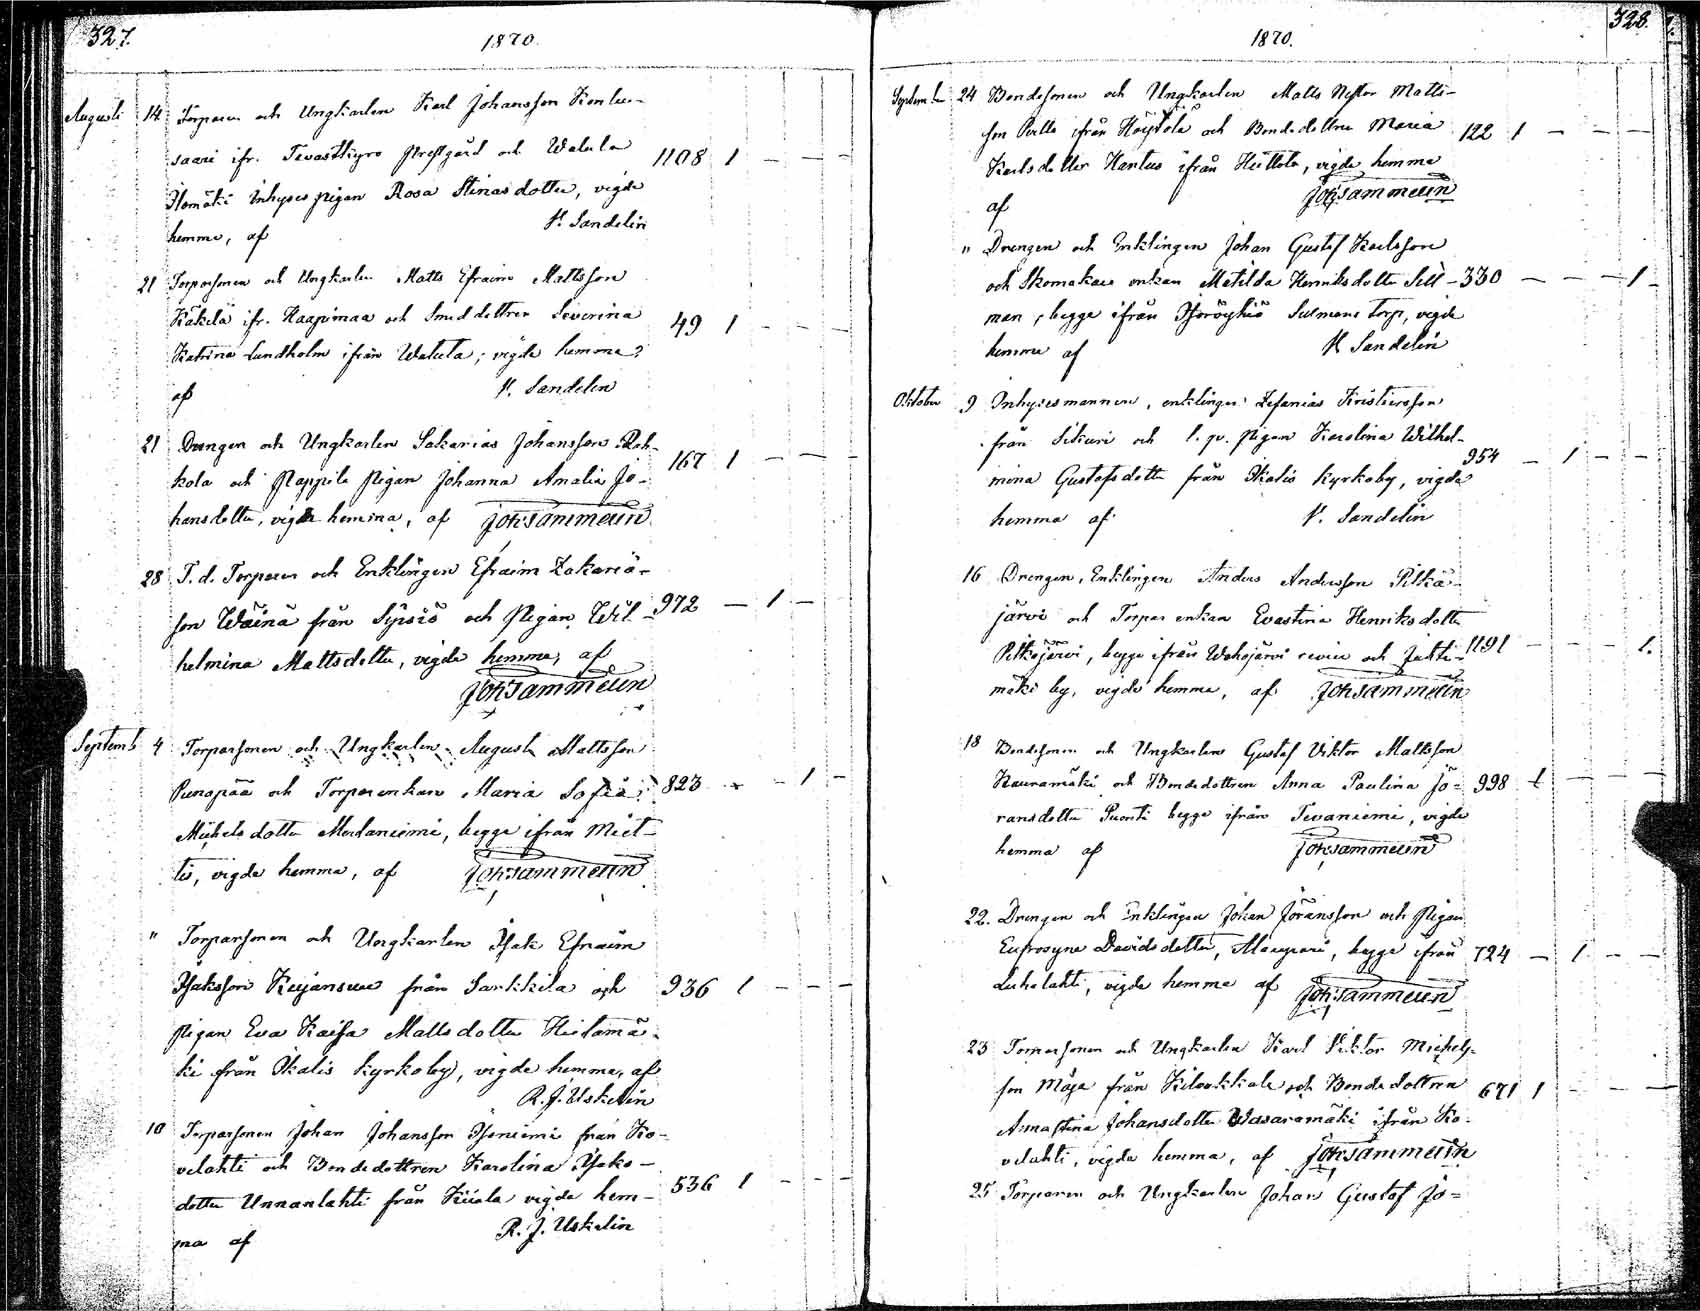 327.
1870.
Augusti 14 Torparen och Ungkarlen Karl Johansson Konlu-
saari ifr. Tavastkyro Prestgård och Watula 1108 1 - - -
Ilomäki Inhyses pigan Rosa Stinasdotter, vigde
hemma, af K. Sandelin
21 Torparsonen och Ungkarlen Matts Efraim Mattsson
Käkelä ifr. Haapimaa och Smeddottren Severina 49 1 - - -
Katrina Lundholm ifrån Watula; vigde hemma
af K. Sandelin
21 Drengen och Ungkarlen Sakarias Johansson Roh-
kola och Pappila Pigan Johanna Amalia Jo- 167 1 - - -
hansdotter, vigde hemma, af Joh: Sammelin
28 F. d. Torparen och Enklingen Efraim Zakaria-
son Wäinä från Sipsiö och Pigan Wil- 972 - 1 -
helmina Mattsdotter, vigde hemma, af
Joh: Sammelin
Septemb 4 Torparsonen och Ungkarlen August Mattsson
Punapää och Torparenkan Maria Sofia 823 - - 1 -
Michelsdotter Merlaniemi, begge ifrån Miet-
tis, vigde hemma, af Joh: Sammelin
" Torparsonen och Ungkarlen Isak Efraim
Isaksson Kujansuu från Sarkkila och 936 1 - - -
pigan Eva Kaisa Mattsdotter Hietamä-
ki från Ikalis Kyrkoby, vigde hemma, af
R. J. Uskelin
10 Torparsonen Johan Johansson Iseniemi från Ko-
velahti och Bondedottren Karolina Isaks-
dotter Unnanlahti från Kiiala vigde hem- 536 1 - - -
ma af R. J. Uskelin
328.
1870.
Septemb 24 Bondesonen och Ungkarlen Matts Nestor Matts-
son Perttu ifrån Höytölä och Bondedottren Maria 122 1 - - -
Karlsdotter Hantus ifrån Heittola, vigde hemma
af Joh: Sammelin
" Drengen och Enklingen Johan Gustaf Karlsson
och Skomakare enkan Matilda Henriksdotter Sill- 330 - - - 1
man, begge ifrån Isoröyhiö Sulmans Torp, vigde
hemma af K Sandelin
Oktober 9 Inhysesmannen, enklingen Zefanias Kristiersson
från Sikuri och l. qv. Pigan Karolina Wilhel-
mina Gustafsdotter från Ikalis Kyrkoby, vigde 954 - 1 - -
hemma af K. Sandelin
16 Drengen, Enklingen Anders Andersson Pitkä-
järvi och Torpar enkan Evastina Henriksdotter
Pitkäjärvi, begge ifrån Wehojärvi och Juhti- 1191 - - - 1.
mäki by, vigde hemma, af Joh: Sammelin
18 Bondesonen och Ungkarlen Gustaf Viktor Mattsson
Hauramäki och Bondedottren Anna Paulina Jö- 998 1 - - -
ransdotter Puonti begge ifrån Tevaniemi, vigde
hemma af Joh: Sammelin
22. Drengen och Enklingen Johan Jöransson och Pigan
Eufrosyne Davidsdotter, Mauguri, begge ifrån 724 - 1 - -
Luhalahti, vigde hemma af Joh: Sammelin
23 Torparsonen och Ungkarlen Karl Viktor Michels-
son Möja från Kilvakkala och Bondedottren 671 1 - - -
Annastina Johansdotter Wasaramäki ifrån Ko-
velahti, vigde hemma, af Joh: Sammelin
25 Torparen och Ungkarlen Johan Gustaf Jo-